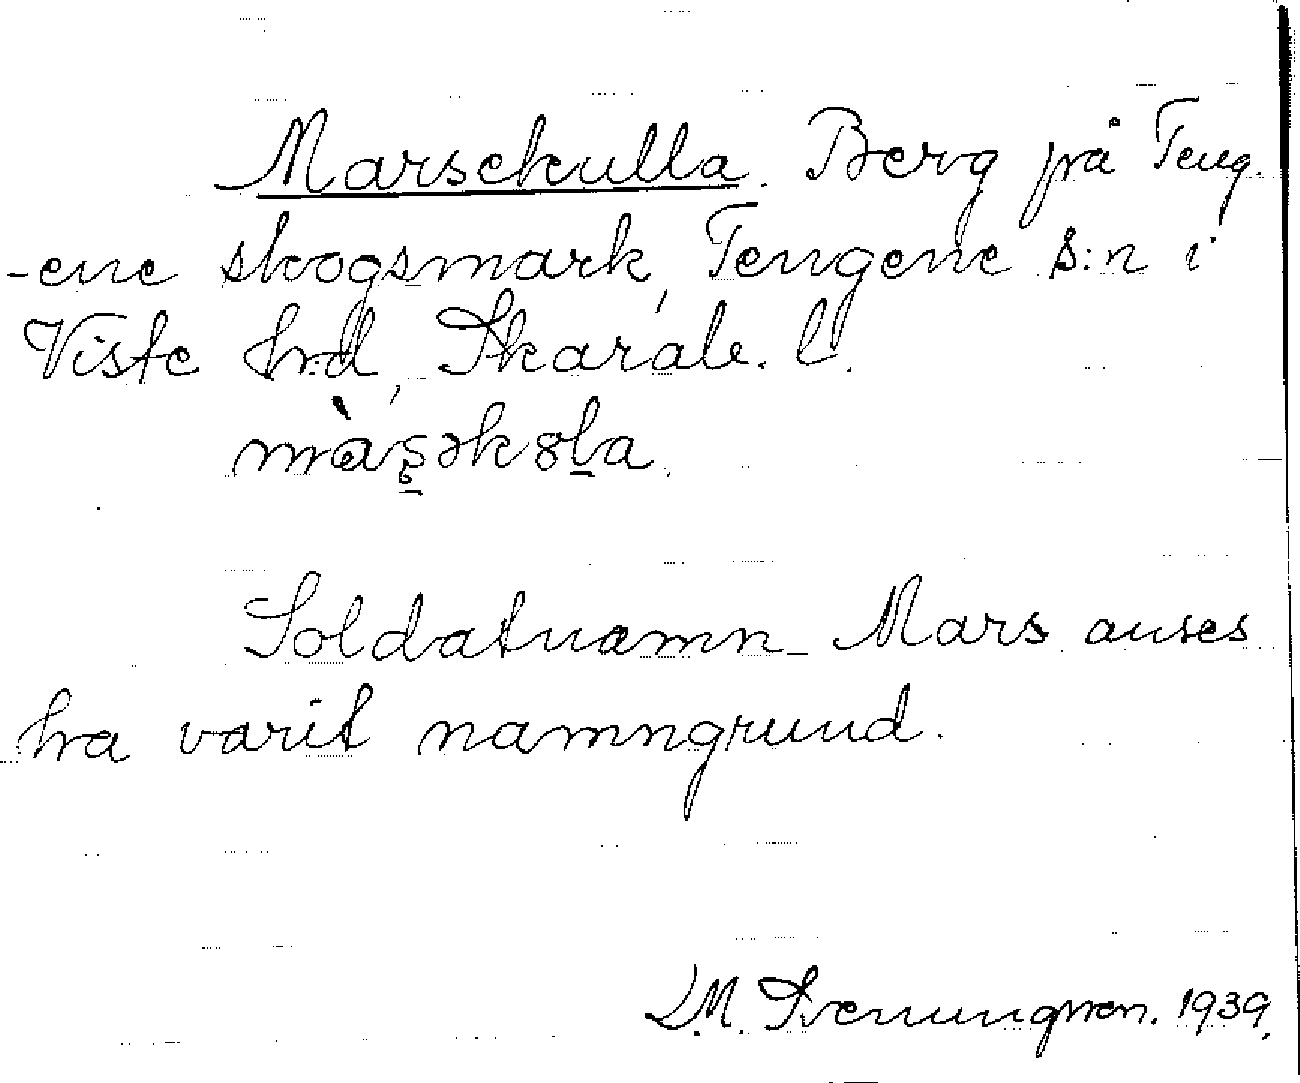 Marsekulla. Berg på Teng-
-ene skogsmark, Tengene s:n i
Viste h:d, Skarab. l.
màşəkȣḷa.
Soldatnamn Mars anses
ha varit namngrund.
L.M. Svenungsson. 1939.